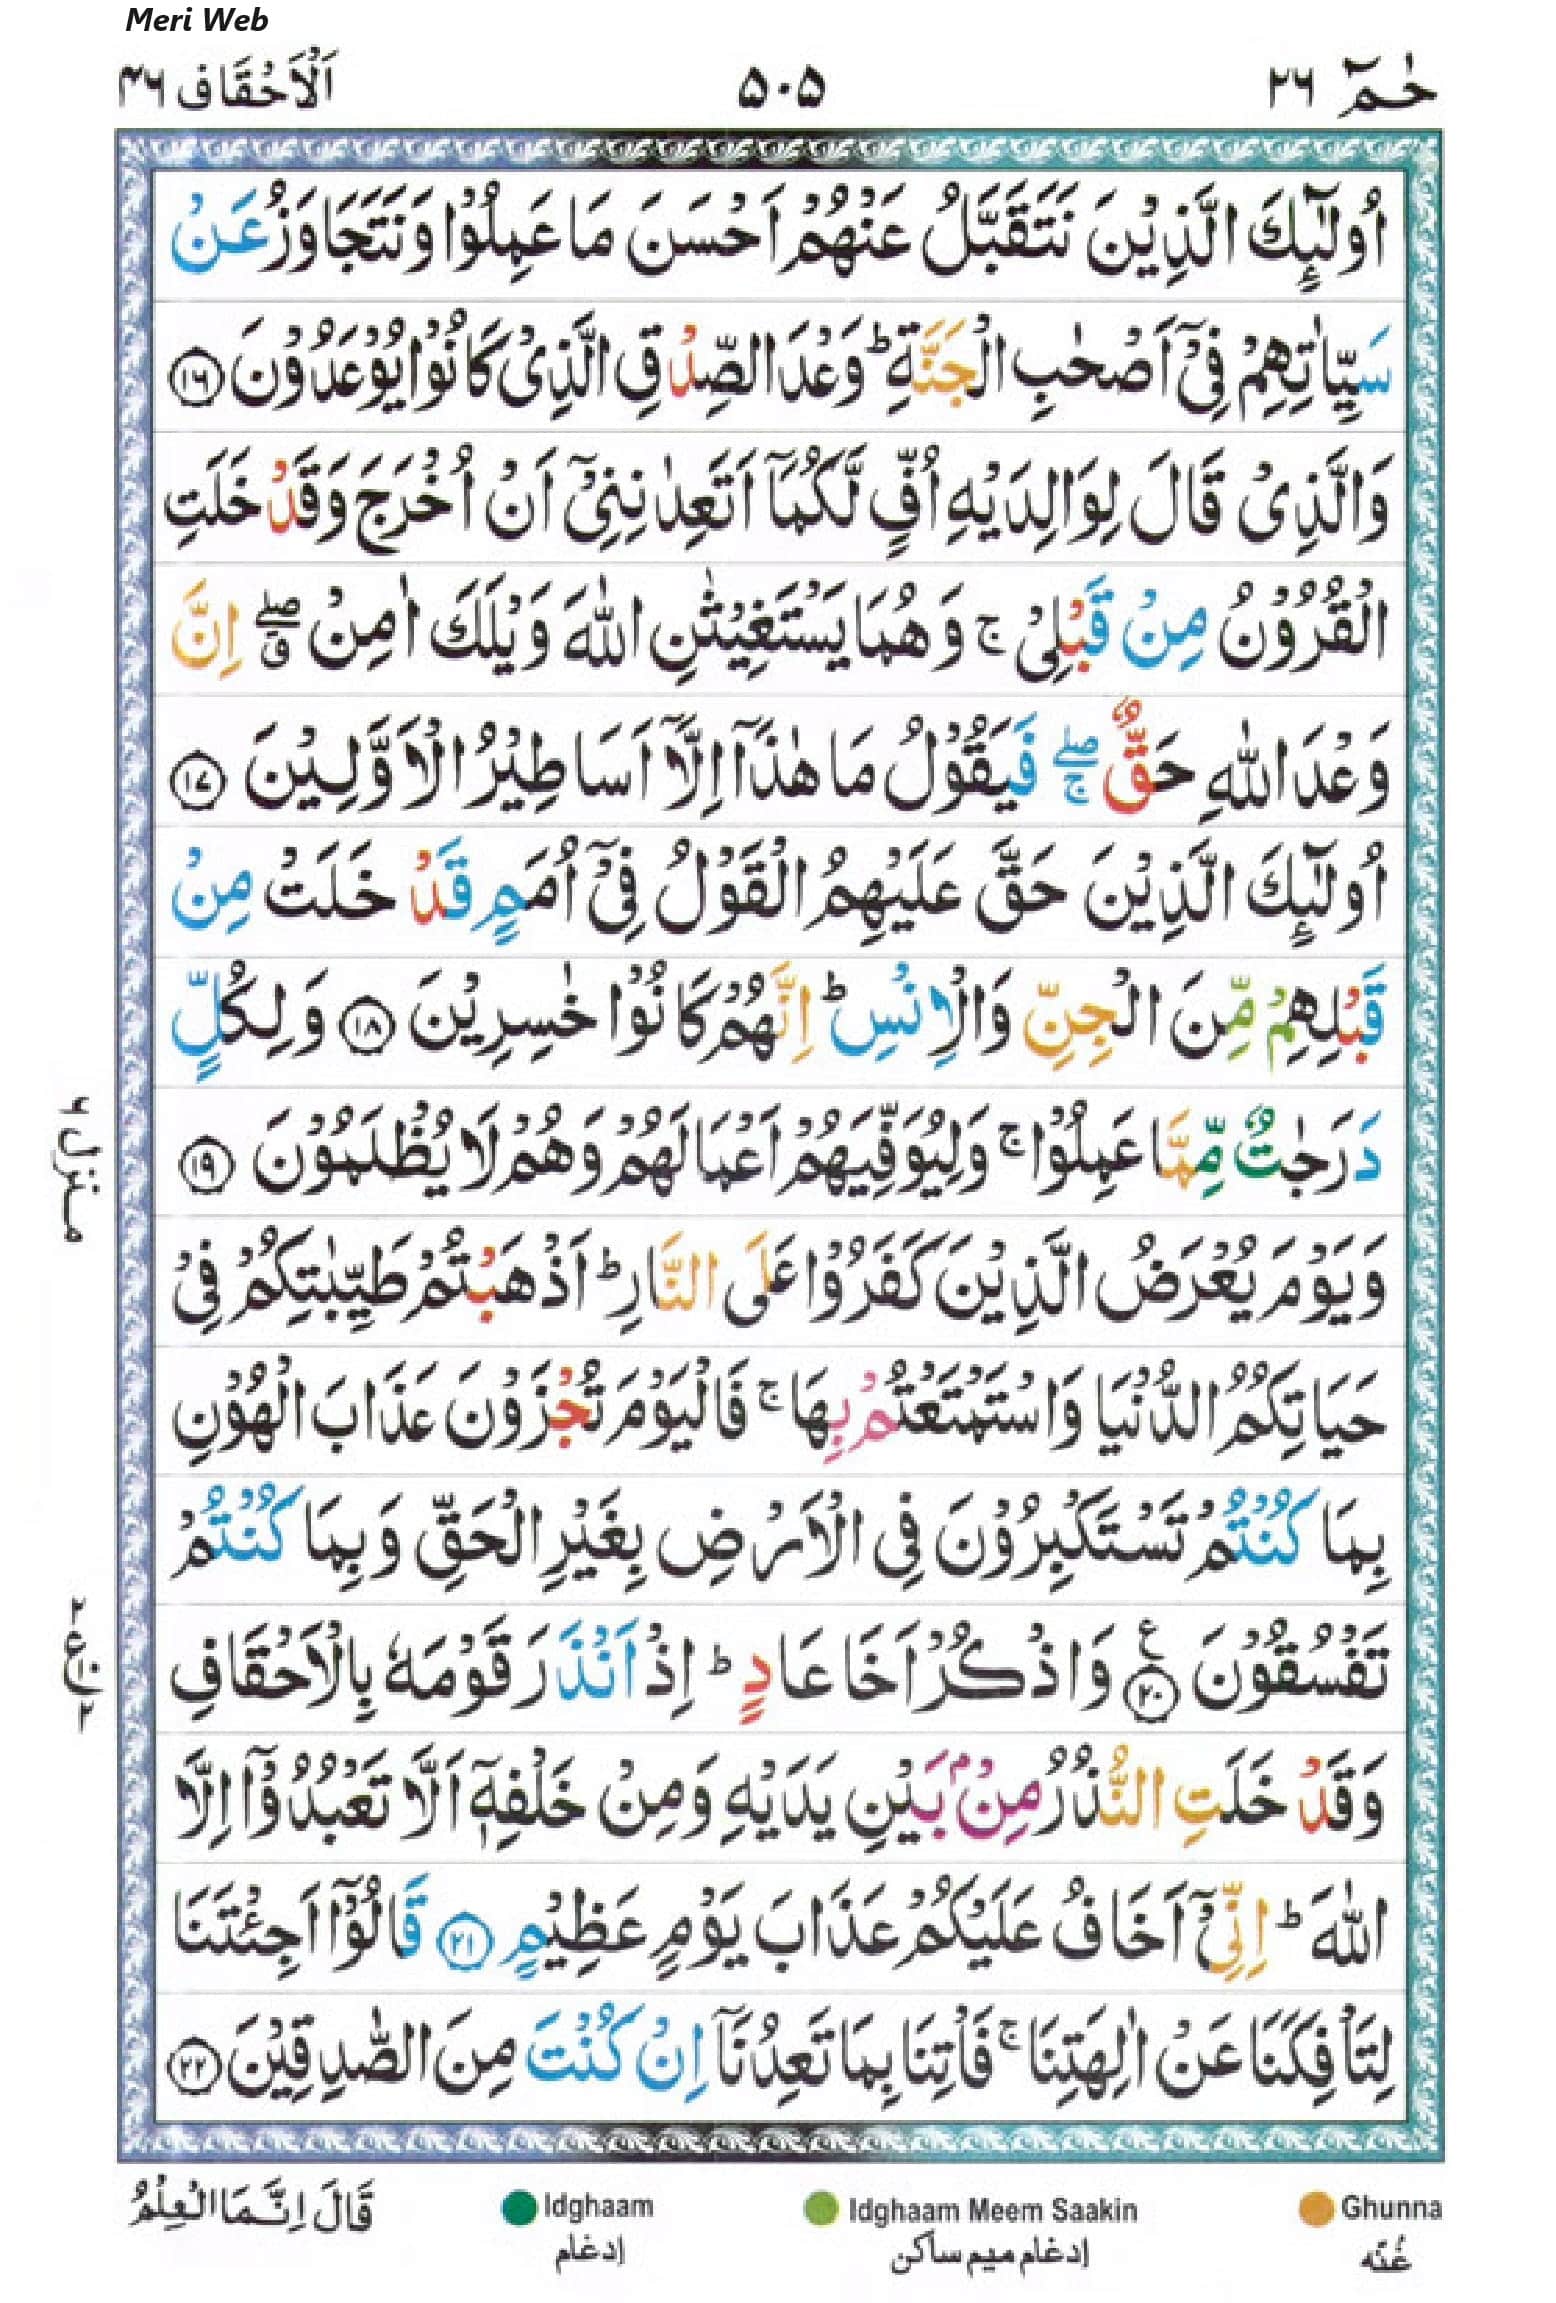 Meri Web
حٰمٓ ۲۶
۵۰۵
اَلْاَحْقَاف ۴۶
اُولٰٓئِكَ الَّذِيْنَ نَتَقَبَّلُ عَنْهُمْ اَحْسَنَ مَا عَمِلُوْا وَنَتَجَاوَزُ عَنْ
سَيِّاٰتِهِمْ فِيْٓ اَصْحٰبِ الْجَنَّةِ ؕ وَعْدَ الصِّدْقِ الَّذِيْ كَانُوْا يُوْعَدُوْنَ ۝۱۶
وَالَّذِيْ قَالَ لِوَالِدَيْهِ اُفٍّ لَّكُمَآ اَتَعِدٰنِنِيْٓ اَنْ اُخْرَجَ وَقَدْ خَلَتِ
الْقُرُوْنُ مِنْ قَبْلِيْ ۚ وَهُمَا يَسْتَغِيْثٰنِ اللّٰهَ وَيْلَكَ اٰمِنْ ۖۗ اِنَّ
وَعْدَ اللّٰهِ حَقٌّ ۖۚ فَيَقُوْلُ مَا هٰذَآ اِلَّآ اَسَاطِيْرُ الْاَوَّلِيْنَ ۝۱۷
اُولٰٓئِكَ الَّذِيْنَ حَقَّ عَلَيْهِمُ الْقَوْلُ فِيْٓ اُمَمٍ قَدْ خَلَتْ مِنْ
قَبْلِهِمْ مِّنَ الْجِنِّ وَالْاِنْسِ ؕ اِنَّهُمْ كَانُوْا خٰسِرِيْنَ ۝۱۸ وَلِكُلٍّ
دَرَجٰتٌ مِّمَّا عَمِلُوْا ۚ وَلِيُوَفِّيَهُمْ اَعْمَالَهُمْ وَهُمْ لَا يُظْلَمُوْنَ ۝۱۹
وَيَوْمَ يُعْرَضُ الَّذِيْنَ كَفَرُوْا عَلَى النَّارِ ؕ اَذْهَبْتُمْ طَيِّبٰتِكُمْ فِيْ
حَيَاتِكُمُ الدُّنْيَا وَاسْتَمْتَعْتُمْ بِهَا ۚ فَالْيَوْمَ تُجْزَوْنَ عَذَابَ الْهُوْنِ
بِمَا كُنْتُمْ تَسْتَكْبِرُوْنَ فِي الْاَرْضِ بِغَيْرِ الْحَقِّ وَبِمَا كُنْتُمْ
تَفْسُقُوْنَ ۝۲۰ ع وَاذْكُرْ اَخَا عَادٍ ؕ اِذْ اَنْذَرَ قَوْمَهٗ بِالْاَحْقَافِ
وَقَدْ خَلَتِ النُّذُرُ مِنْۢ بَيْنِ يَدَيْهِ وَمِنْ خَلْفِهٖٓ اَلَّا تَعْبُدُوْٓا اِلَّا
اللّٰهَ ؕ اِنِّيْٓ اَخَافُ عَلَيْكُمْ عَذَابَ يَوْمٍ عَظِيْمٍ ۝۲۱ قَالُوْٓا اَجِئْتَنَا
لِتَاْفِكَنَا عَنْ اٰلِهَتِنَا ۚ فَاْتِنَا بِمَا تَعِدُنَآ اِنْ كُنْتَ مِنَ الصّٰدِقِيْنَ ۝۲۲
منزل ۶
۲ ع ۲
قَالَ اِنَّمَا الْعِلْمُ
Idghaam
إدغام
Idghaam Meem Saakin
إدغام ميم ساكن
Ghunna
غُنّه